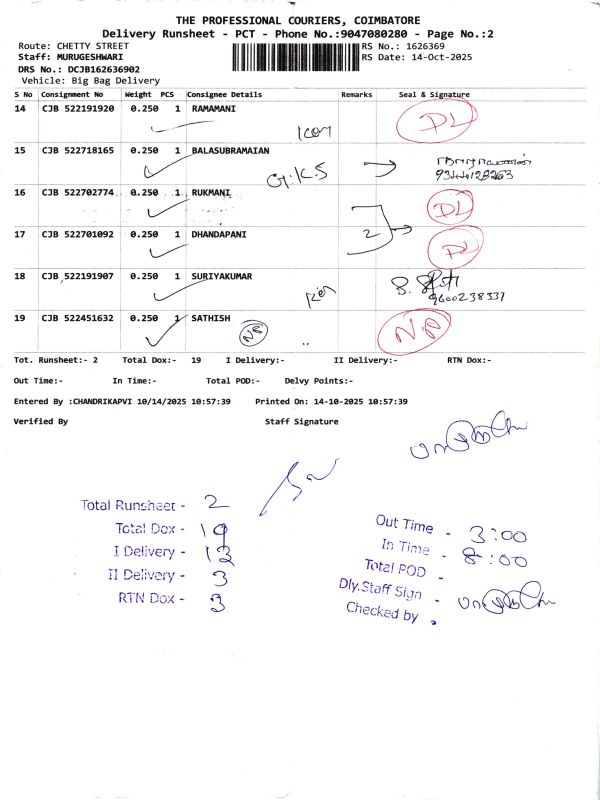 THE PROFESSIONAL COURIERS, COIMBATORE
Delivery Runsheet - PCT - Phone No.:9047080280 - Page No.:2
Route: CHETTY STREET RS No.: 1626369
Staff: MURUGESHWARI RS Date: 14-Oct-2025
DRS No.: DCJB162636902
Vehicle: Big Bag Delivery
S No Consignment No Weight PCS Consignee Details Remarks Seal & Signature
14 CJB 522191920 0.250 1 RAMAMANI DL
15 CJB 522718165 0.250 1 BALASUBRAMAIAN
G.K.S
16 CJB 522702774 0.250 1 RUKMANI DL
2
17 CJB 522701092 0.250 1 DHANDAPANI DL
18 CJB 522191907 0.250 1 SURIYAKUMAR
9600238337
19 CJB 522451632 0.250 1 SATHISH NP NP
Tot. Runsheet:- 2 Total Dox:- 19 I Delivery:- II Delivery:- RTN Dox:-
Out Time:- In Time:- Total POD:- Delvy Points:-
Entered By :CHANDRIKAPVI 10/14/2025 10:57:39 Printed On: 14-10-2025 10:57:39
Verified By Staff Signature
Total Runsheet - 2
Total Dox - 19
I Delivery - 13
II Delivery - 3
RTN Dox - 3
Out Time - 3:00
In Time - 8:00
Total POD -
Dly.Staff Sign -
Checked by